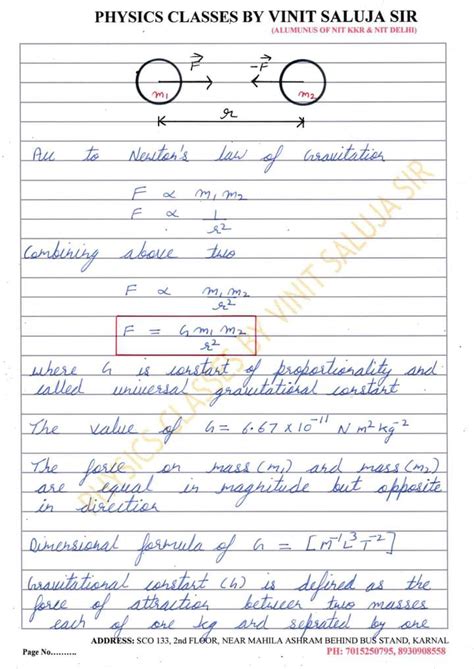 PHYSICS CLASSES BY VINIT SALUJA SIR
(ALUMUNUS OF NIT KKR & NIT DELHI)
F⃗ -F⃗
m₁ m₂
r
Acc to Newton's law of Gravitation
F ∝ m₁ m₂
F ∝ 1/r²
Combining above two
F ∝ m₁ m₂/r²
F = G m₁ m₂/r²
where G is constant of proportionality and
called universal gravitational constant
The value of G = 6.67 x 10⁻¹¹ N m² kg⁻²
The force on mass (m₁) and mass (m₂)
are equal in magnitude but opposite
in direction
Dimensional formula of G = [M⁻¹L³T⁻²]
Gravitational constant (G) is defined as the
force of attraction between two masses
each of one kg and seprated by one
ADDRESS: SCO 133, 2nd FLOOR, NEAR MAHILA ASHRAM BEHIND BUS STAND, KARNAL
Page No.......... PH: 7015250795, 8930908558
PHYSICS CLASSES BY VINIT SALUJA SIR